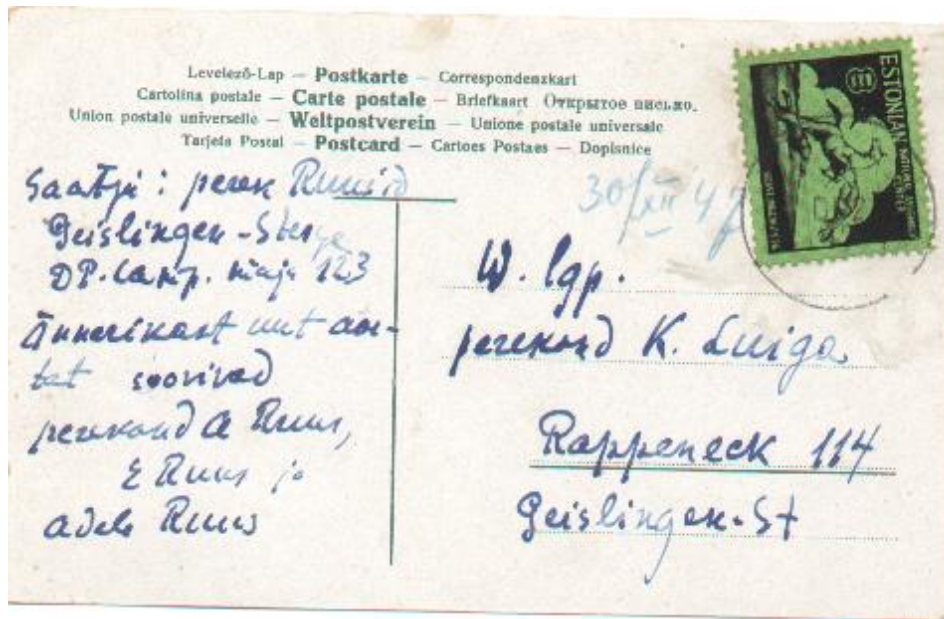 Levelező-Lap – Postkarte – Correspondenzkart
Cartolina postale – Carte postale – Briefkaart Открытое письмо.
Union postale universelle – Weltpostverein – Unione postale universale
Tarjeta Postal – Postcard – Cartoes Postaes – Dopisnice
ESTONIAN
30/XII 47
Saatja: perek Ruus
Geislingen-Steige
DP. Camp. maja 123
Õnnerikast uut aas-
tat soovivad
perekond A Ruus,
E Ruus ja
Adele Ruus
W. lgp.
perekond K. Luiga
Rappeneck 114
Geislingen-St